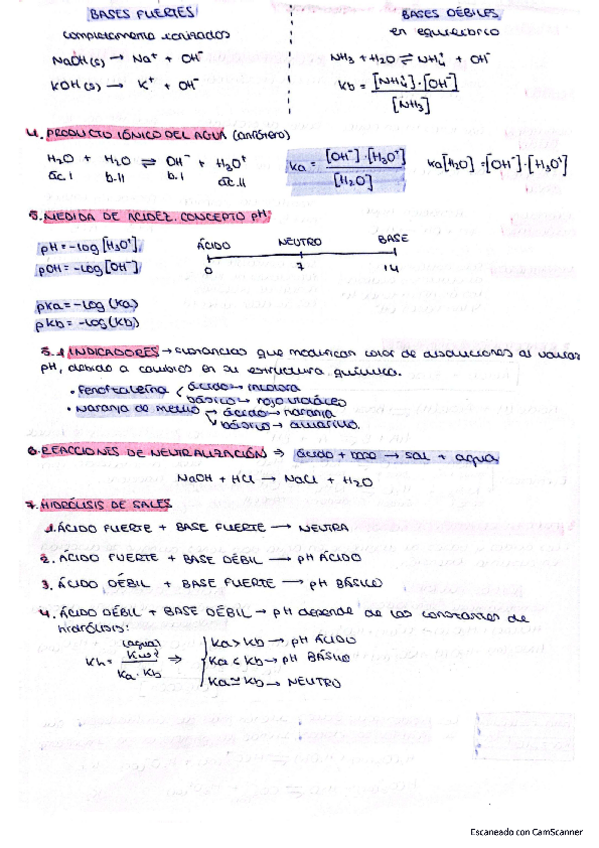 BASES FUERTES
completamente ionizados
NaOH(s) → Na⁺ + OH⁻
KOH(s) → K⁺ + OH⁻
BASES DÉBILES
en equilibrio
NH₃ + H₂O ⇌ NH₄⁺ + OH⁻
Kb = [NH₄⁺]·[OH⁻] / [NH₃]
4. PRODUCTO IÓNICO DEL AGUA (anfótero)
H₂O + H₂O ⇌ OH⁻ + H₃O⁺
ác.I b.II b.I ác.II
Ka = [OH⁻]·[H₃O⁺] / [H₂O]
Ka[H₂O] = [OH⁻]·[H₃O⁺]
5. MEDIDA DE ACIDEZ. CONCEPTO pH
pH = -log [H₃O⁺]
pOH = -log [OH⁻]
ÁCIDO NEUTRO BASE
0 7 14
pKa = -log (Ka)
pKb = -log (Kb)
5.1 INDICADORES → sustancias que modifican color de disoluciones al variar
pH, debido a cambios en su estructura química.
• Fenolftaleína ácido → incolora
básico → rojo violáceo
• Naranja de metilo → ácido → naranja
→ básico → amarillo.
6. REACCIONES DE NEUTRALIZACIÓN ⇒ ácido + base → sal + agua
NaOH + HCl → NaCl + H₂O
7. HIDRÓLISIS DE SALES
1. ÁCIDO FUERTE + BASE FUERTE → NEUTRA
2. ÁCIDO FUERTE + BASE DÉBIL → pH ÁCIDO
3. ÁCIDO DÉBIL + BASE FUERTE → pH BÁSICO
4. ÁCIDO DÉBIL + BASE DÉBIL → pH depende de las constantes de
hidrólisis:
(agua)
Kh = Kw / Ka·Kb ⇒
Ka > Kb → pH ÁCIDO
Ka < Kb → pH BÁSICO
Ka ≃ Kb → NEUTRO
Escaneado con CamScanner